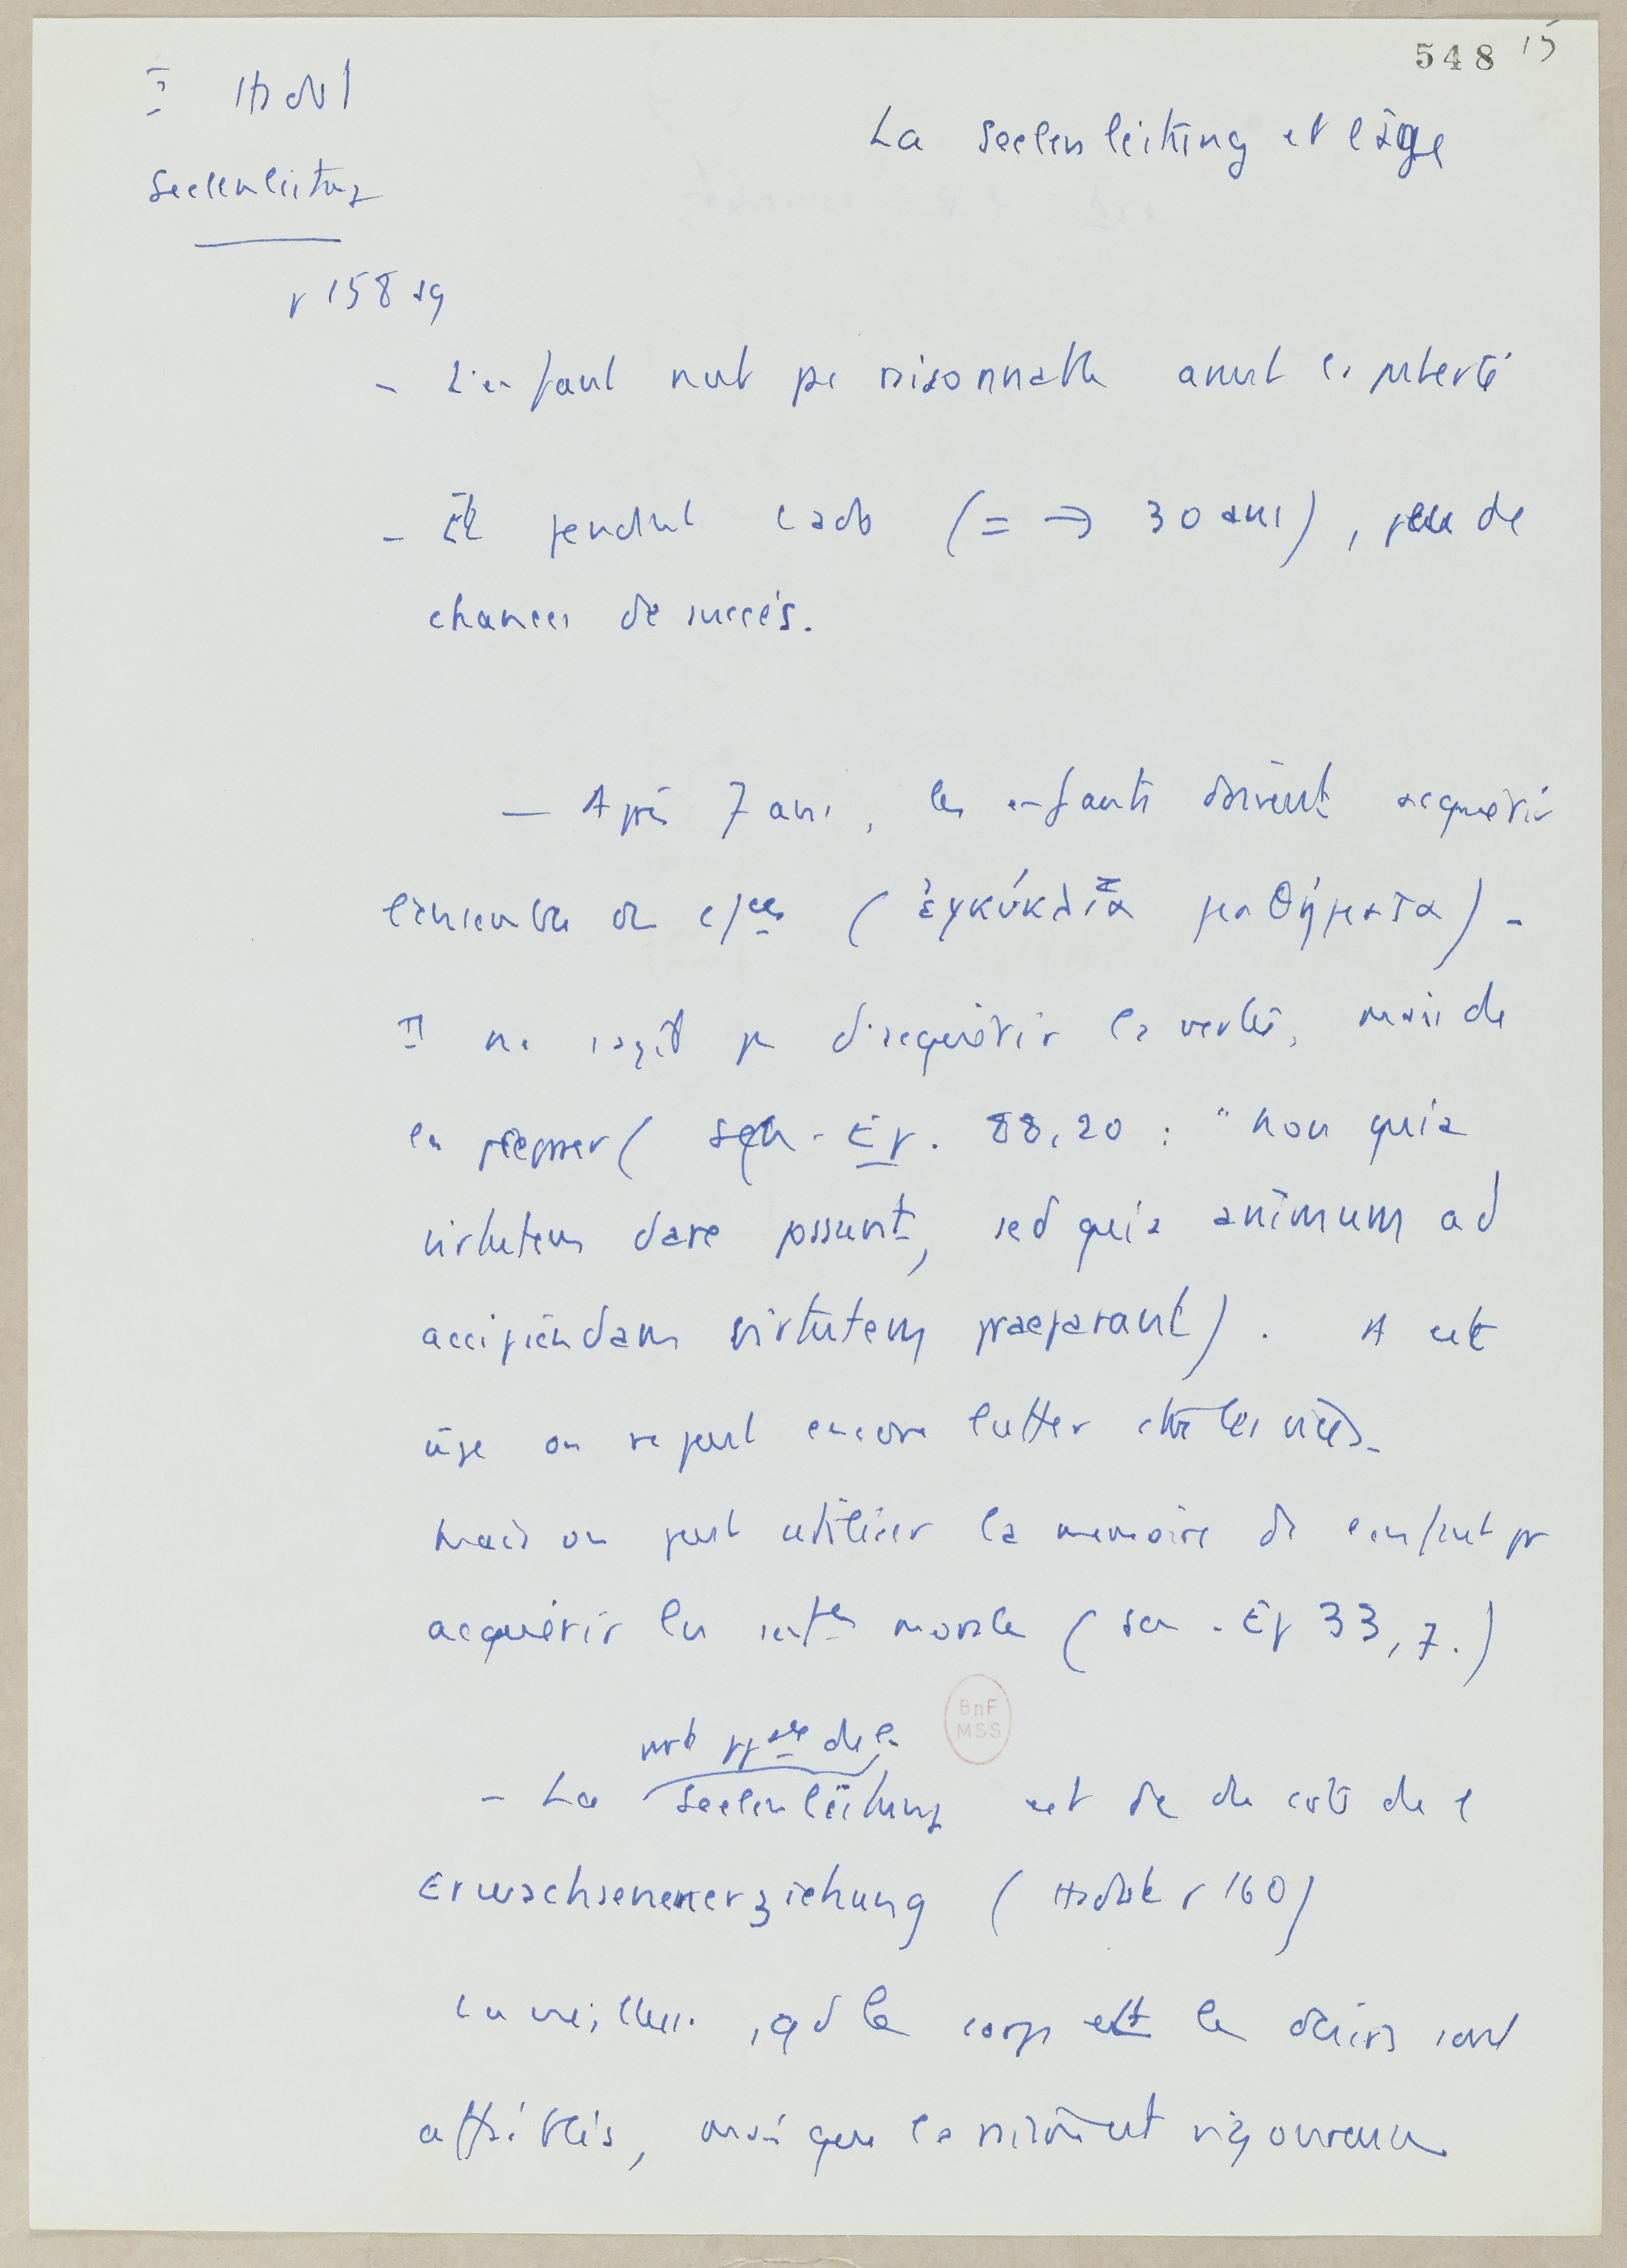 548 15
I. Hadot
Seelenleitung
La Seelenleitung et l'âge
p 158 sq
- L'enfant n'est pas raisonnable avant la puberté
- Et pendant l'ado (= → 30 ans), peu de
chances de succès.
- Après 7 ans, les enfants doivent acquérir
l'ensemble de (ἐγκύκλια μαθήματα) -
Il ne s'agit pas d'acquérir la vertu, mais de
la préparer ( Sen - Ep. 88,20 : "non quia
virtutem dare possunt, sed quia animum ad
accipiendam virtutem praeparant) . A cet
âge on ne peut encore lutter ctre les vices.
Mais on peut utiliser la memoire de l'enfant pr
acquérir les morale ( Sen - Ep 33,7.)
BnF
MSS
- La Seelenleitung est de du coté de l
Erwachsenenerziehung ( Hadot p 160)
La vieillesse, qd le corps et les désirs sont
affaiblis, mais que la raison est vigoureuse